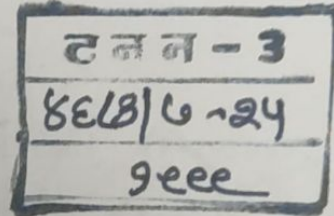 टनन - 3
४६८४| ७ -२५
१९९९